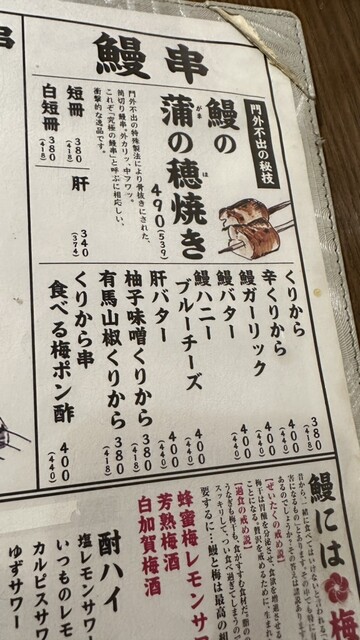 鰻串
門外不出の秘技
鰻の
蒲の穂焼き
がま
ほ
490(539)
門外不出の特殺製法により骨抜きにされた、
筒切り鰻串。外カリッ、中フワッ。
これぞ「究極の鰻串」と呼ぶに相応しい、
衝撃的な逸品です。
短冊 380(418)
白短冊 380(418)
肝 340(374)
くりから 380(418)
辛くりから 400(440)
鰻ガーリック 400(440)
鰻バター 400(440)
鰻ハニー
ブルーチーズ 400(440)
肝バター 400(440)
柚子味噌くりから 380(418)
有馬山椒くりから 380(418)
くりから串
食べる梅ポン酢 400(440)
鰻には梅
【ぜいたくの戒め説】
【過食の戒め説】
蜂蜜梅レモンサ
芳熟梅酒
白加賀梅酒
酎ハイ
塩レモンサワ
いつものレモ
カルピスサワ
ゆずサワー